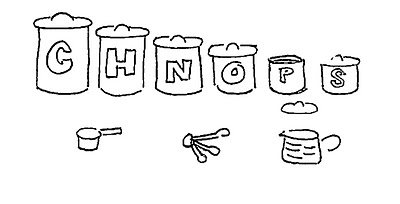 C H N O P S